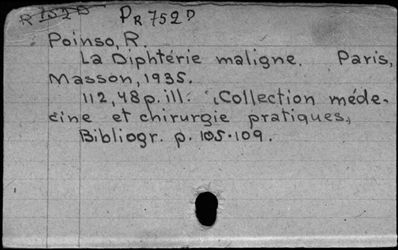 R 752 D PR 752 D
Poinso, R.
La Diphtérie maligne. Paris,
Masson, 1935.
112, 48 p. ill. (Collection méde-
cine et chirurgie pratiques,
Bibliogr. p. 105-109.